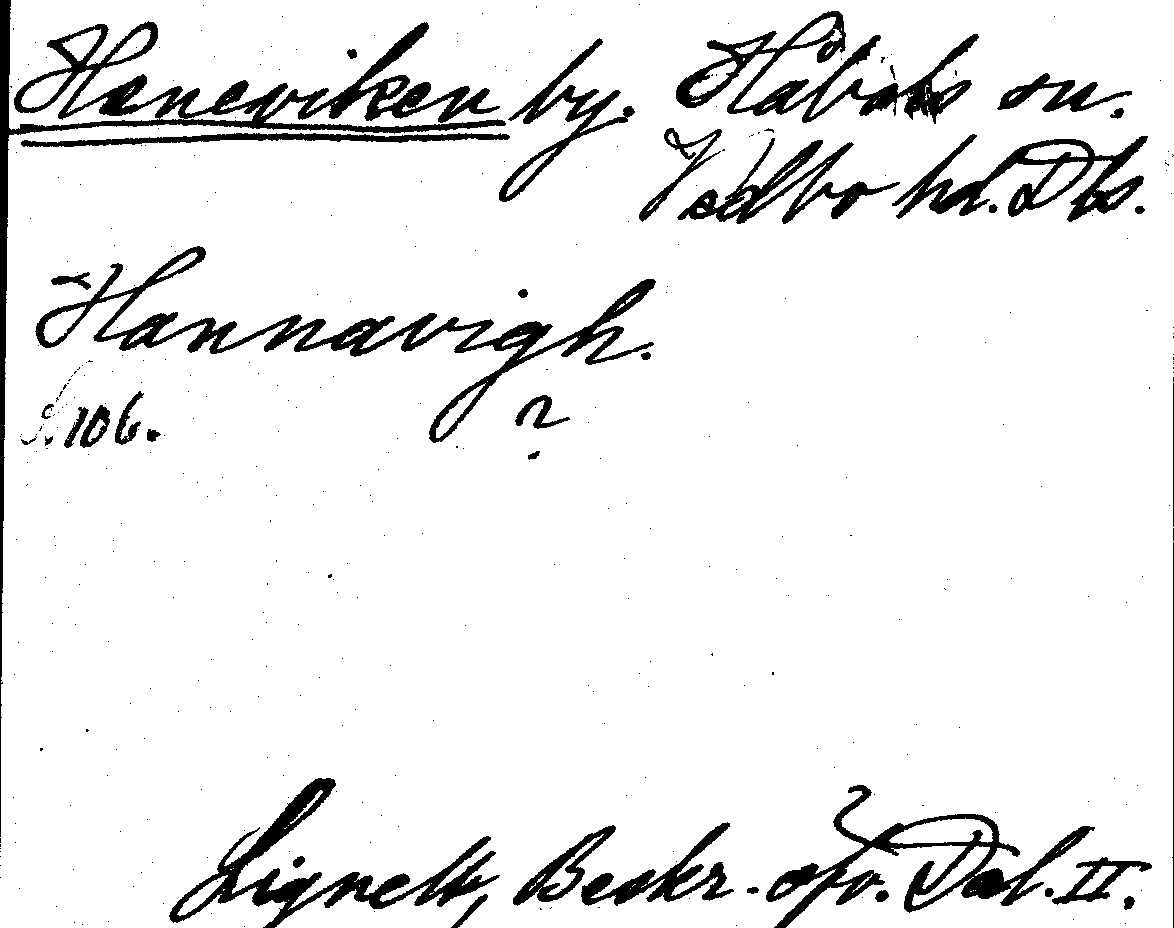 Heneviken by. Håbols sn.
Vedbo hd. Dls.
Hannavigh.
S. 106. ?
Lignell, Beskr. öfv. Dal. II.